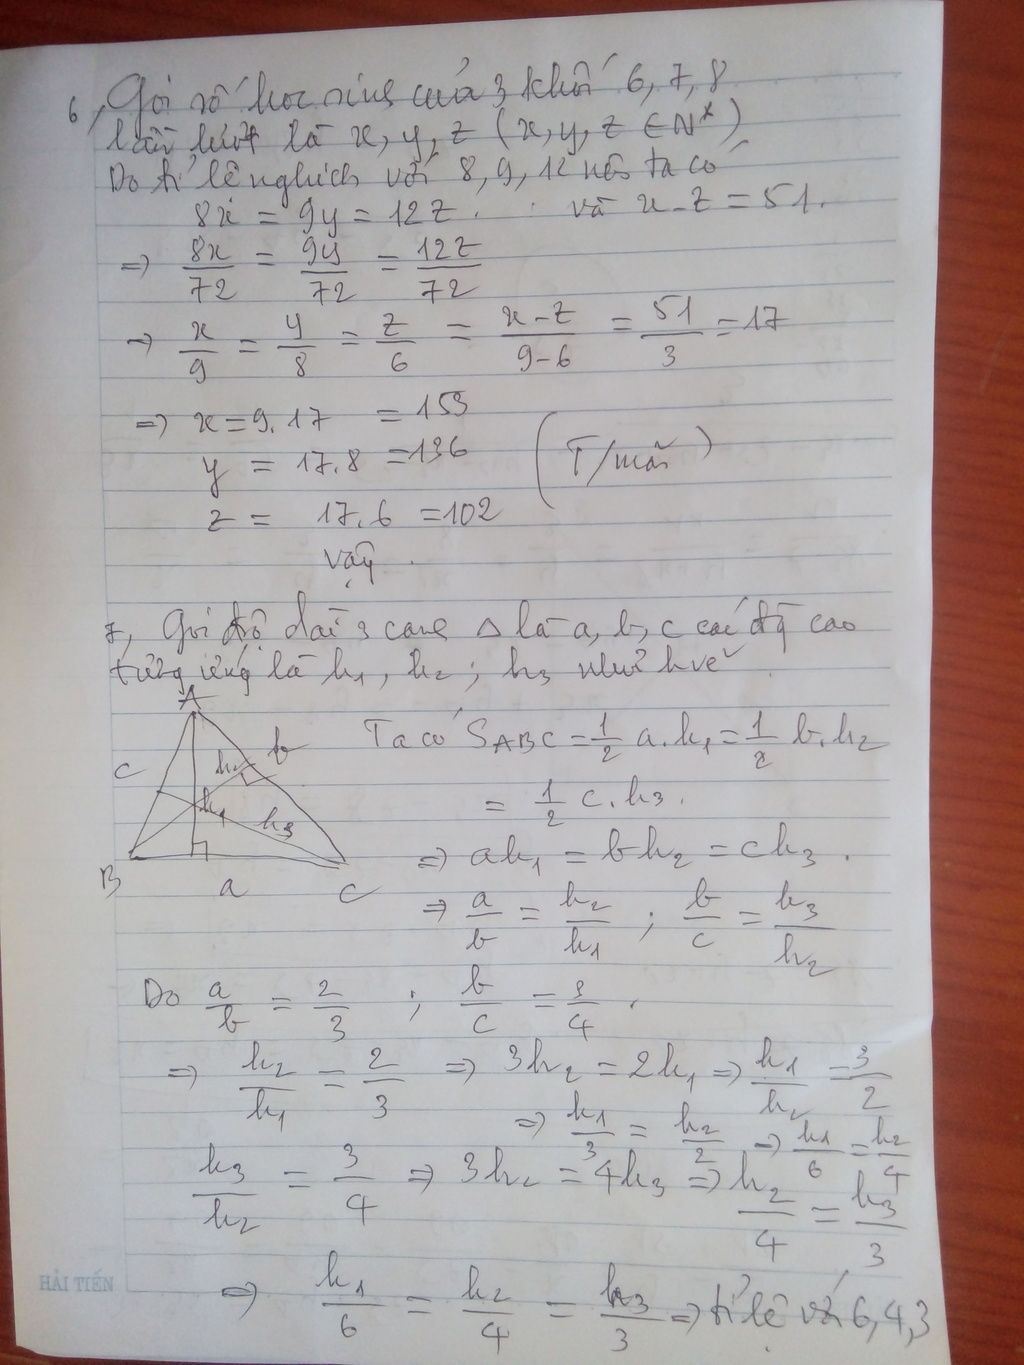 6, Gọi số học sinh của 3 khối 6, 7, 8
lần lượt là x, y, z (x, y, z ∈ N*)
Do tỉ lệ nghịch với 8, 9, 12 nên ta có
8x = 9y = 12z. và x - z = 51.
=> 8x/72 = 9y/72 = 12z/72
=> x/9 = y/8 = z/6 = x-z/9-6 = 51/3 = 17
=> x = 9.17 = 153
y = 17.8 = 136 (T/mãn)
z = 17.6 = 102
vậy.
7, Gọi độ dài 3 cạnh Δ là a, b, c các độ cao
tương ứng là h1, h2; h3 như hvẽ
A
B
C
c
b
a
h2
h1
h3
Ta có SABC = 1/2 a.h1 = 1/2 b.h2
= 1/2 c.h3.
=> ah1 = bh2 = ch3.
=> a/b = h2/h1 ; b/c = h3/h2
Do a/b = 2/3 ; b/c = 3/4.
=> h2/h1 = 2/3 => 3h2 = 2h1 => h1/h2 = 3/2
=> h1/3 = h2/2 => h1/6 = h2/4
h3/h2 = 3/4 => 3h2 = 4h3 => h2/4 = h3/3
=> h1/6 = h2/4 = h3/3 => tỉ lệ với 6, 4, 3
HẢI TIẾN